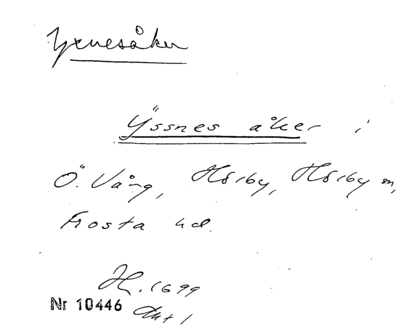 Yxnesåker
Yssnes åker i
Ö. Vång, Hörby, Hörby sn,
Frosta hd.
H. 1699
Nr 10446 Akt 1